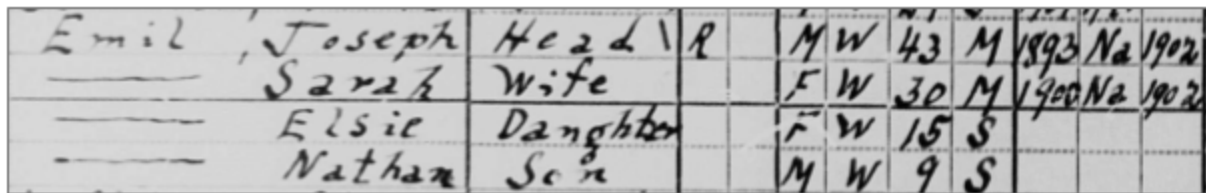 Emil , Joseph Head \ R M W 43 M 1893 Na 1902
—— Sarah Wife F W 30 M 1900 Na 1902
—— Elsie Daughter F W 15 S
—— Nathan Son M W 9 S